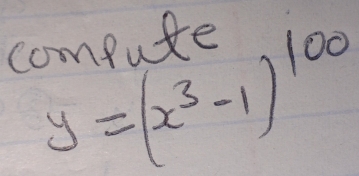 compute
y = (x³ - 1)¹⁰⁰